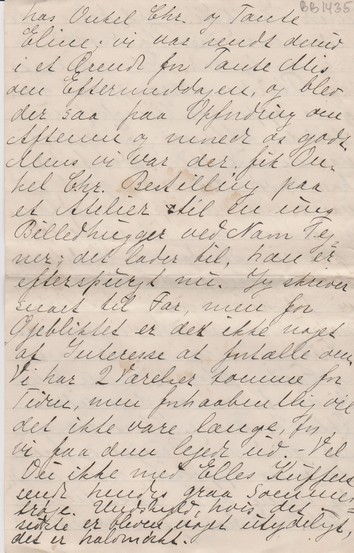 BB1435
hos Onkel Chr. og Tante
Eline; vi var sendt derud
i et Ærende for Tante Mis
om Eftermiddagen, og blev
der saa paa Opfordring om
Aftenen og morede os godt.
Mens vi var der, fik On-
kel Chr. Bestilling paa
et Atelier til en ung
Billedhugger ved Navn Teg-
ner; det lader til, han er
efterspurgt nu. Jeg skriver
snart til Far, men for
Øjeblikket er det ikke noget
af Interesse at fortælle om.
Vi har 2 Værelser tomme for
Tiden, men forhaabentlig vil
det ikke vare længe, før
vi faa dem lejet ud. - Vil
I ikke med Elles Kuffert
sende hendes graa Sommer-
trøje. Undskyld, hvis det
sidste er bleven noget utydeligt,
det er halvmørkt.